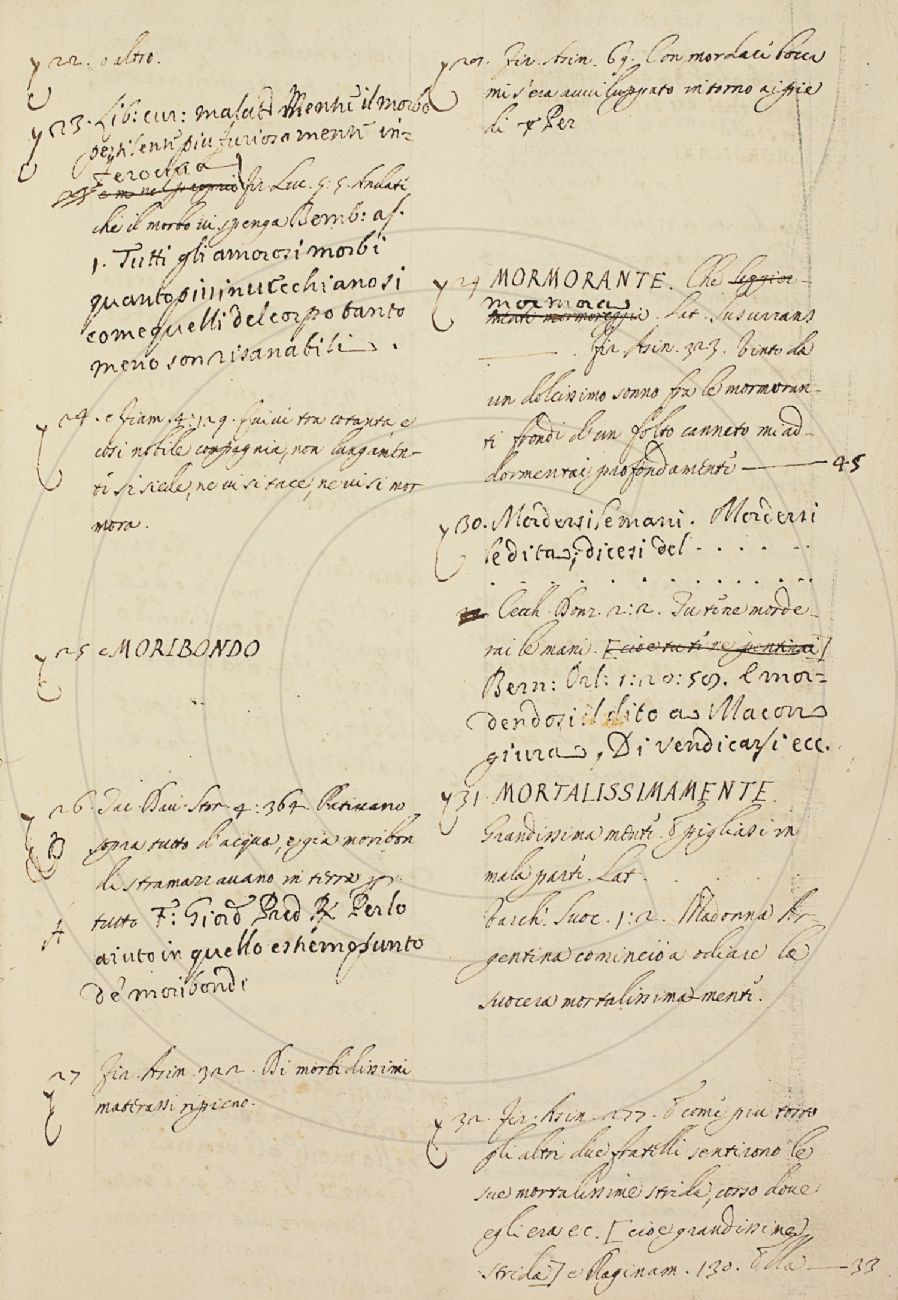 22. o altro.
23. Lib: cur: malatt: Mentre il morbo
pestilente più furiosamente in=
ferociva
Fir. Luc. 5: 5. Andate
che il morbo vi spenga Bemb: as.
1. Tutti gli amorosi morbi
quanto più invecchiano si
come quelli del corpo tanto
meno son risanabili.
24. e Fiam. 4: 129. fui vi tra cotanta e
così nobile compagnia, non lungamen-
te si siede, ne vi si tace, ne vi si mor
mora.
25 e MORIBONDO
26. Tac. Dav. Stor. 4: 364. Pativano
B sopra tutto d'acqua, e già moribon
di stramazzavano in terra per
A tutto F: Giord Pred R Per lo
aiuto in quello estremo punto
de' moribondi
27 Fir. Asin. 322. Di morbidissimi
materassi ripieno.
Fir. Asin. 69. Con mordaci bocca
mi s'era avviluppato intorno ai pie
di Per
29 MORMORANTE. Che leggier-
mormora
mente mormoreggia. Lat. Susurrans
. Fir Asin. 323. Vinto da
un dolcissimo sonno fra le mormoran-
ti frondi d'un folto canneto mi ad-
dormentai profondamente — 45
30. Mordersi le mani. Mordersi
le dita, dicesi del . . . . . .
. . . . . . . . . . . . . .
Cecch. Donz. 2: 2. Tu tene morde-
rai le mani. [cioè tu ti re pentirai]
Bern: Orl: 1: 20: 59. E mor=
dendosi il dito a Macon
giura, Di vendicarsi ecc.
31. MORTALISSIMAMENTE.
Grandissima mente. E pigliasi in
mala parte. Lat. . . .
Cecch. Suoc. 1: 2. Madonna Ar-
gentina cominciò a odiare la
suocera mortalissima-mente.
32. Fir. Asin. 277. E come piu tosto
gli altri due fratelli sentirono le
sue mortalissime strida, corso dove
egli era ec. [cioè grandissime
strida] e Raginam. 130. Ella — 33